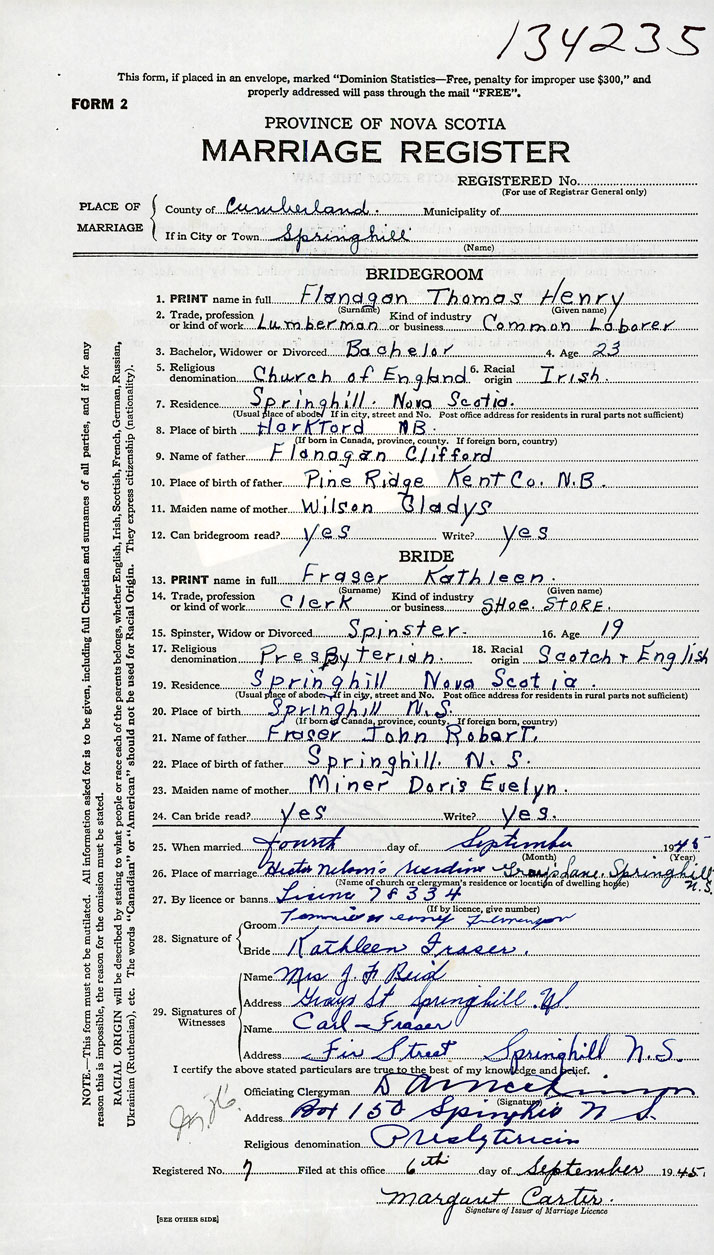 134235
This form, if placed in an envelope, marked "Dominion Statistics—Free, penalty for improper use $300," and
properly addressed will pass through the mail "FREE".
FORM 2
PROVINCE OF NOVA SCOTIA
MARRIAGE REGISTER
REGISTERED No.
(For use of Registrar General only)
PLACE OF MARRIAGE
County of Cumberland. Municipality of
If in City or Town Springhill
(Name)
BRIDEGROOM
1. PRINT name in full Flanagan Thomas Henry
(Surname) (Given name)
2. Trade, profession or kind of work Lumberman Kind of industry or business Common Laborer
3. Bachelor, Widower or Divorced Bachelor 4. Age 23
5. Religious denomination Church of England 6. Racial origin Irish.
7. Residence Springhill. Nova Scotia.
(Usual place of abode. If in city, street and No. Post office address for residents in rural parts not sufficient)
8. Place of birth Harkford NB.
(If born in Canada, province, county. If foreign born, country)
9. Name of father Flanagan Clifford
10. Place of birth of father Pine Ridge Kent Co. N.B.
11. Maiden name of mother Wilson Gladys
12. Can bridegroom read? yes Write? yes
BRIDE
13. PRINT name in full Fraser Kathleen.
(Surname) (Given name)
14. Trade, profession or kind of work Clerk Kind of industry or business SHOE. STORE.
15. Spinster, Widow or Divorced Spinster. 16. Age 19
17. Religious denomination Presbyterian. 18. Racial origin Scotch + English
19. Residence Springhill Nova Scotia.
(Usual place of abode. If in city, street and No. Post office address for residents in rural parts not sufficient)
20. Place of birth Springhill N.S.
(If born in Canada, province, county. If foreign born, country)
21. Name of father Fraser John Robert.
22. Place of birth of father Springhill. N.S.
23. Maiden name of mother Miner Doris Evelyn.
24. Can bride read? yes Write? yes.
25. When married fourth day of September 1945
(Month) (Year)
26. Place of marriage Hector Nelson's Gray's Lane, Springhill N.S.
(Name of church or clergyman's residence or location of dwelling house)
27. By licence or banns 78334
(If by licence, give number)
28. Signature of
Groom
Bride Kathleen Fraser.
29. Signatures of Witnesses
Name Mrs J. F Reid
Address Grays St Springhill. NS
Name Carl Fraser
Address Fir Street Springhill N.S.
I certify the above stated particulars are true to the best of my knowledge and belief.
Officiating Clergyman
(Signature)
Address Box 150 Springhill N S.
Religious denomination Presbyterian
Registered No. 7 Filed at this office 6th day of September 1945.
Margaret Carter.
Signature of Issuer of Marriage Licence
[SEE OTHER SIDE]
NOTE.—This form must not be mutilated. All information asked for is to be given, including full Christian and surnames of all parties, and if for any
reason this is impossible, the reason for the omission must be stated.
RACIAL ORIGIN will be described by stating to what people or race each of the parents belongs, whether English, Irish, Scottish, French, German, Russian,
Ukrainian (Ruthenian), etc. The words "Canadian" or "American" should not be used for Racial Origin. They express citizenship (nationality).